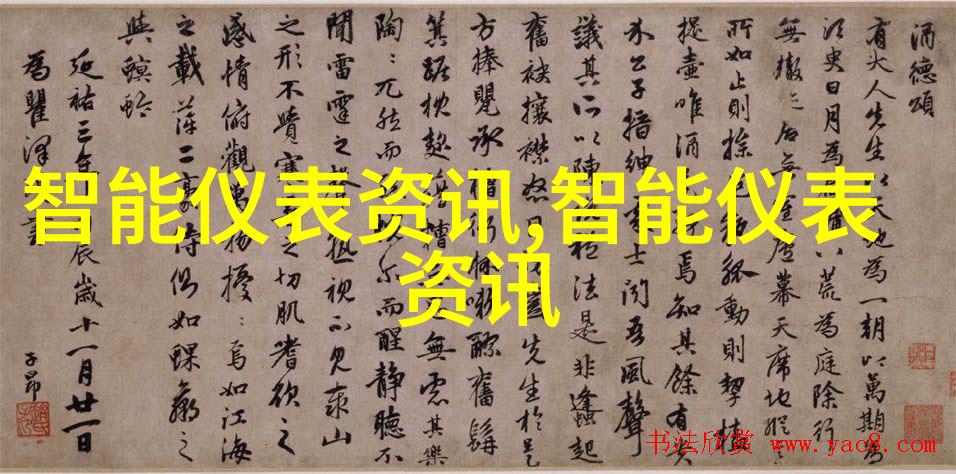 酒德頌
有大人先生以天地為一朝以萬期為
須臾日月為牖八荒為庭除行
無轍迹居無室廬幕天席地縱意
所如止則操執觚動則挈榼
提壺唯酒是務焉知其餘有貴
介公子搢紳處士聞吾風聲
議其所以陳禮法是非蠭起
奮袂攘襟怒目切齒先生於是
方捧甖承槽銜杯漱醪奮髯
箕踞枕麴藉糟無思無慮其樂
陶〻兀然而醉怳尔而醒靜聽不
聞雷霆之聲熟視不見泰山
之形不覺寒暑之切肌嗜欲之
感情俯觀萬物擾〻焉如江海
之載浮萍二豪侍側如蜾蠃之
與螟蛉
延祐三年丙辰歲十一月廿一日
為瞿澤書
子昂
智能仪表资讯,智能仪表
资讯
书法欣赏 www.yac8.com